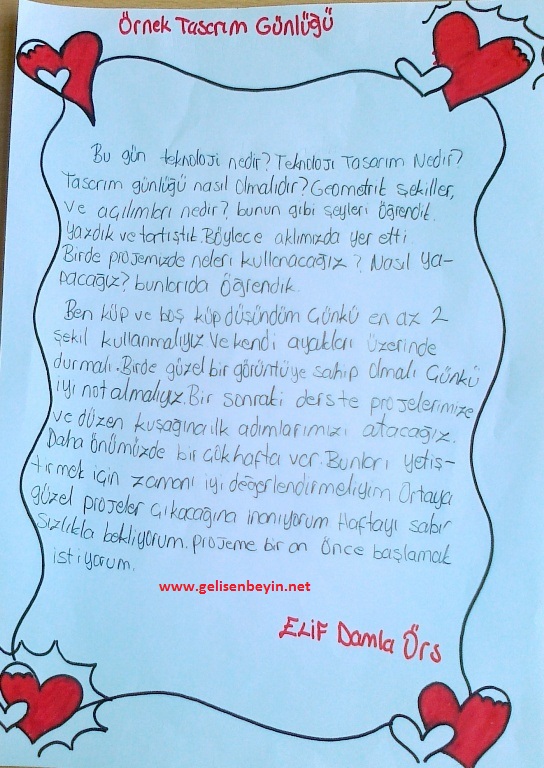 Örnek Tasarım Günlüğü
Bu gün teknoloji nedir? Teknoloji Tasarım Nedir?
Tasarım günlüğü nasıl Olmalıdır? Geometrik Şekiller,
ve açılımları nedir? bunun gibi şeyleri öğrendik.
yazdık ve tartıştık. Böylece aklımızda yer etti.
Birde projemizde neleri kullanacağız? Nasıl ya-
pacağız? bunlarıda Öğrendik.
Ben küp ve boş küp düşündüm Günkü en az 2
şekil kullanmalıyız ve kendi ayakları üzerinde
durmalı. Birde güzel bir görüntüye sahip Olmalı Günkü
iyi not almalıyız. Bir sonraki derste projelerimize
ve düzen kuşağına ilk adımlarımızı atacağız.
Daha önümüzde bir çok hafta var. Bunları yetiş-
tirmek için zamanı iyi değerlendirmeliyim Ortaya
güzel projeler çıkacağına inanıyorum Haftayı sabır
sızlıkla bekliyorum. projeme bir an önce başlamak
istiyorum.
www.gelisenbeyin.net
ELİF Damla Örs